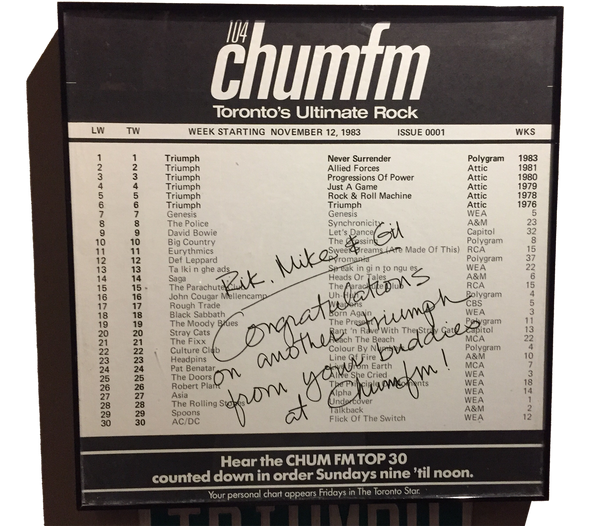 104
chumfm
Toronto's Ultimate Rock
LW TW WEEK STARTING NOVEMBER 12, 1983 ISSUE 0001 WKS
1 1 Triumph Never Surrender Polygram 1983
2 2 Triumph Allied Forces Attic 1981
3 3 Triumph Progressions Of Power Attic 1980
4 4 Triumph Just A Game Attic 1979
5 5 Triumph Rock & Roll Machine Attic 1978
6 6 Triumph Triumph Attic 1976
7 7 Genesis Genesis WEA 5
8 8 The Police Synchronicity A&M 23
9 9 David Bowie Let's Dance Capitol 32
10 10 Big Country The Polygram 8
11 11 Eurythmics Sweet Dreams (Are Made Of This) RCA 15
12 12 Def Leppard Pyromania Polygram 37
13 13 Talking heads Speaking in tongues WEA 22
14 14 Saga Heads Or Tales A&M 6
15 15 The Parachute Club The Parachute Club RCA 15
16 16 John Cougar Mellencamp Uh Polygram 4
17 17 Rough Trade CBS 5
18 18 Black Sabbath Born Again WEA 3
19 19 The Moody Blues The Polygram 11
20 20 Stray Cats Rant 'n Rave With The Stray Cats Capitol 13
21 21 The Fixx Reach The Beach MCA 22
22 22 Culture Club Colour By Polygram 4
23 23 Headpins Line Of Fire A&M 10
24 24 Pat Benatar Live From Earth MCA 7
25 25 The Doors Alive She Cried WEA 3
26 26 Robert Plant The Principle Moments WEA 18
27 27 Asia Alpha WEA 14
28 28 The Rolling Stones Undercover WEA 1
29 29 Spoons Talkback A&M 2
30 30 AC/DC Flick Of The Switch WEA 12
Rik, Mike & Gil
Congratulations
on another triumph
from your buddies
at Chumfm!
Hear the CHUM FM TOP 30
counted down in order Sundays nine 'til noon.
Your personal chart appears Fridays in The Toronto Star.
TRIUMPH